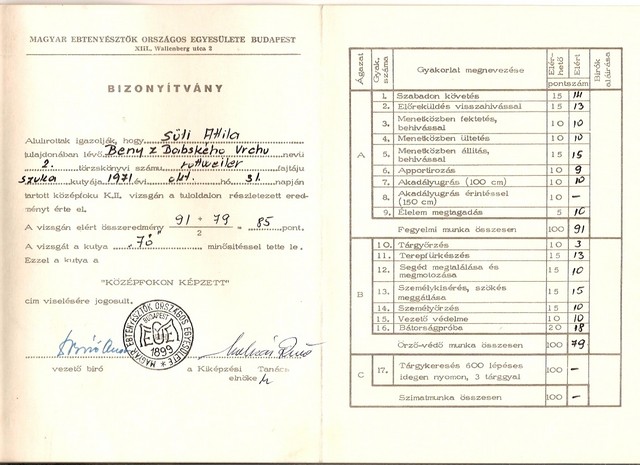 MAGYAR EBTENYÉSZTŐK ORSZÁGOS EGYESÜLETE BUDAPEST
XIII., Wallenberg utca 2
BIZONYÍTVÁNY
Alulírottak igazolják, hogy Süli Attila
tulajdonában lévő Beny z Babského Vrchu nevü
2. törzskönyvi számu rottweiler fajtáju
szuka kutyája 1971 évi okt. hó 31. napján
tartott középfoku K.II. vizsgán a tuloldalon részletezett ered-
ményt érte el.
A vizsgán elért összeredmény 91 + 79 / 2 = 85 pont.
A vizsgát a kutya "Jó" minősítéssel tette le.
Ezzel a kutya a
"KÖZÉPFOKON KÉPZETT"
cím viselésére jogosult.
MAGYAR EBTENYÉSZTŐK ORSZÁGOS EGYESÜLETE
BUDAPEST
1899
vezető biró
a Kiképzési Tanács
elnöke
Ágazat Gyak. száma Gyakorlat megnevezése Elérhető Elért pontszám Birók aláirása
1. Szabadon követés 15 14
2. Előreküldés visszahivással 15 13
3. Menetközben fektetés, behivással 10 10
4. Menetközben ültetés 10 10
5. Menetközben állítás, behivással 15 15
A
6. Apportirozás 10 9
7. Akadályugrás (100 cm) 10 10
8. Akadályugrás érintéssel (150 cm) 10 –
9. Élelem megtagadás 5 10
Fegyelmi munka összesen 100 91
10. Tárgyőrzés 10 3
11. Terepfürkészés 15 13
12. Segéd megtalálása és megmotozása 15 10
B
13. Személykisérés, szökés meggátlása 15 15
14. Személyőrzés 15 10
15. Vezető védelme 10 10
16. Bátorságpróba 20 18
Őrző-védő munka összesen 100 79
C 17. Tárgykeresés 600 lépéses idegen nyomon, 3 tárggyal 100 –
Szimatmunka összesen 100 –